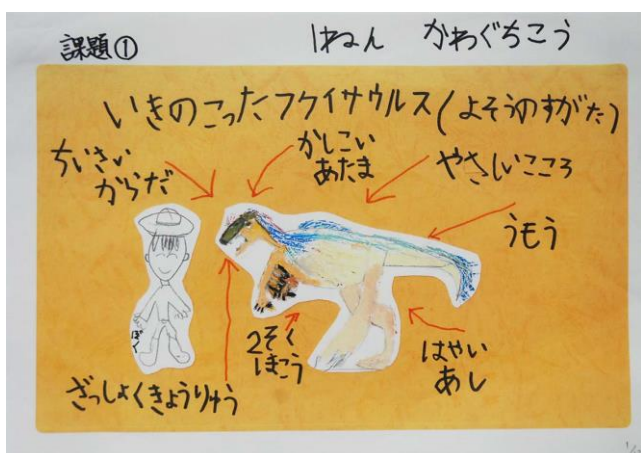 課題①
1ねん かわぐちこう
いきのこったフクイサウルス(よそうのすがた)
ちいさい
からだ
かしこい
あたま
やさしいこころ
うもう
ぼく
2そく
ほこう
はやい
あし
ざっしょくきょうりゅう